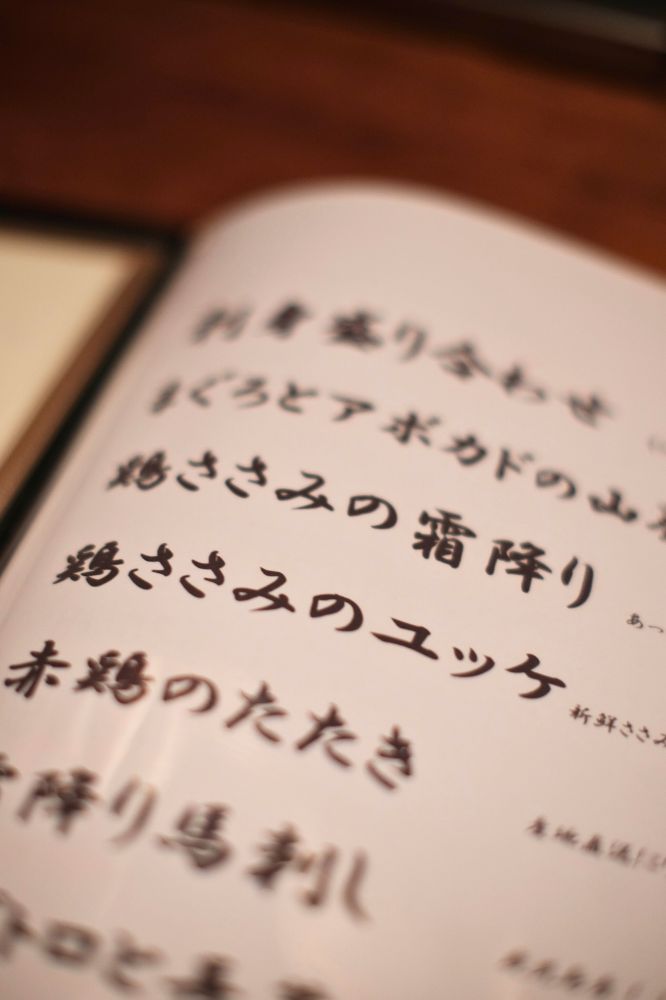 刺身盛り合わせ
まぐろとアボカドの山
鶏ささみの霜降り
あっ
鶏ささみのユッケ
新鮮ささみ
赤鶏のたたき
産地直送
霜降り馬刺し
トロと